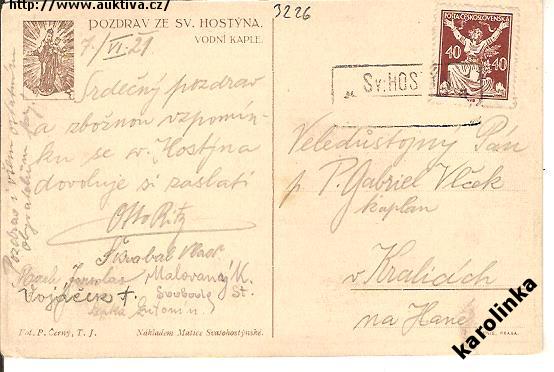 http://www.auktiva.cz/
3226
POZDRAV ZE SV. HOSTÝNA.
VODNÍ KAPLE.
7./VI.21
Srdečný pozdrav
a zbožnou vzpomín-
ku se sv. Hostýna
dovoluje si zaslati
Otto Ritz
Malovaný K.
Vojáček F.
Svoboda St.
Pozdrav i všem
Fot. P. Černý, T. J.
Nákladem Matice Svatohostýnské.
POŠTA ČESKOSLOVENSKÁ
40 40
Sv. HOS
Veledůstojný Pán
p. P. Gabriel Vlček
kaplan
v Kralicích
na Hané
PRAHA.
karolinka